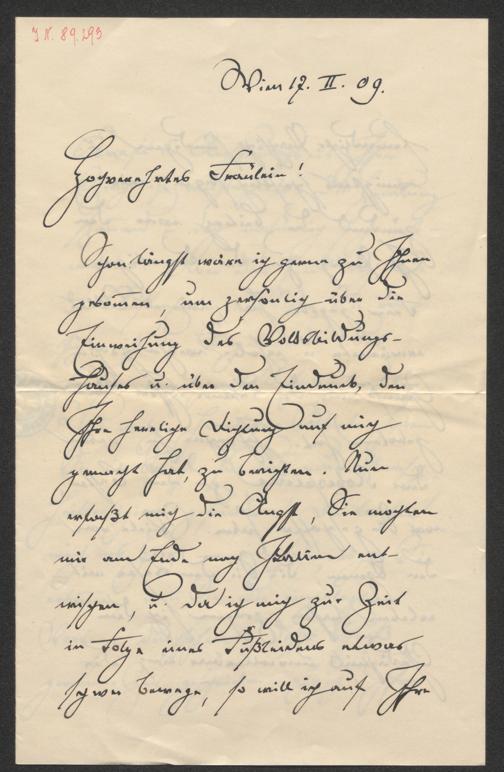 I N. 89.293
Wien 17. II. 09.
Hochverehrtes Fräulein!
Schon längst wäre ich gerne zu Ihnen
gekommen, um persönlich über die
Einweihung des Volksbildungs-
hauses u. über den Eindruck, den
Ihre herrliche Dichtung auf mich
gemacht hat, zu berichten. Nun
erfaßt mich die Angst, Sie möchten
mir am Ende nach Italien ent-
wischen, u. da ich mich zur Zeit
in Folge eines Fußleidens etwas
schwer bewege, so will ich auf Ihre